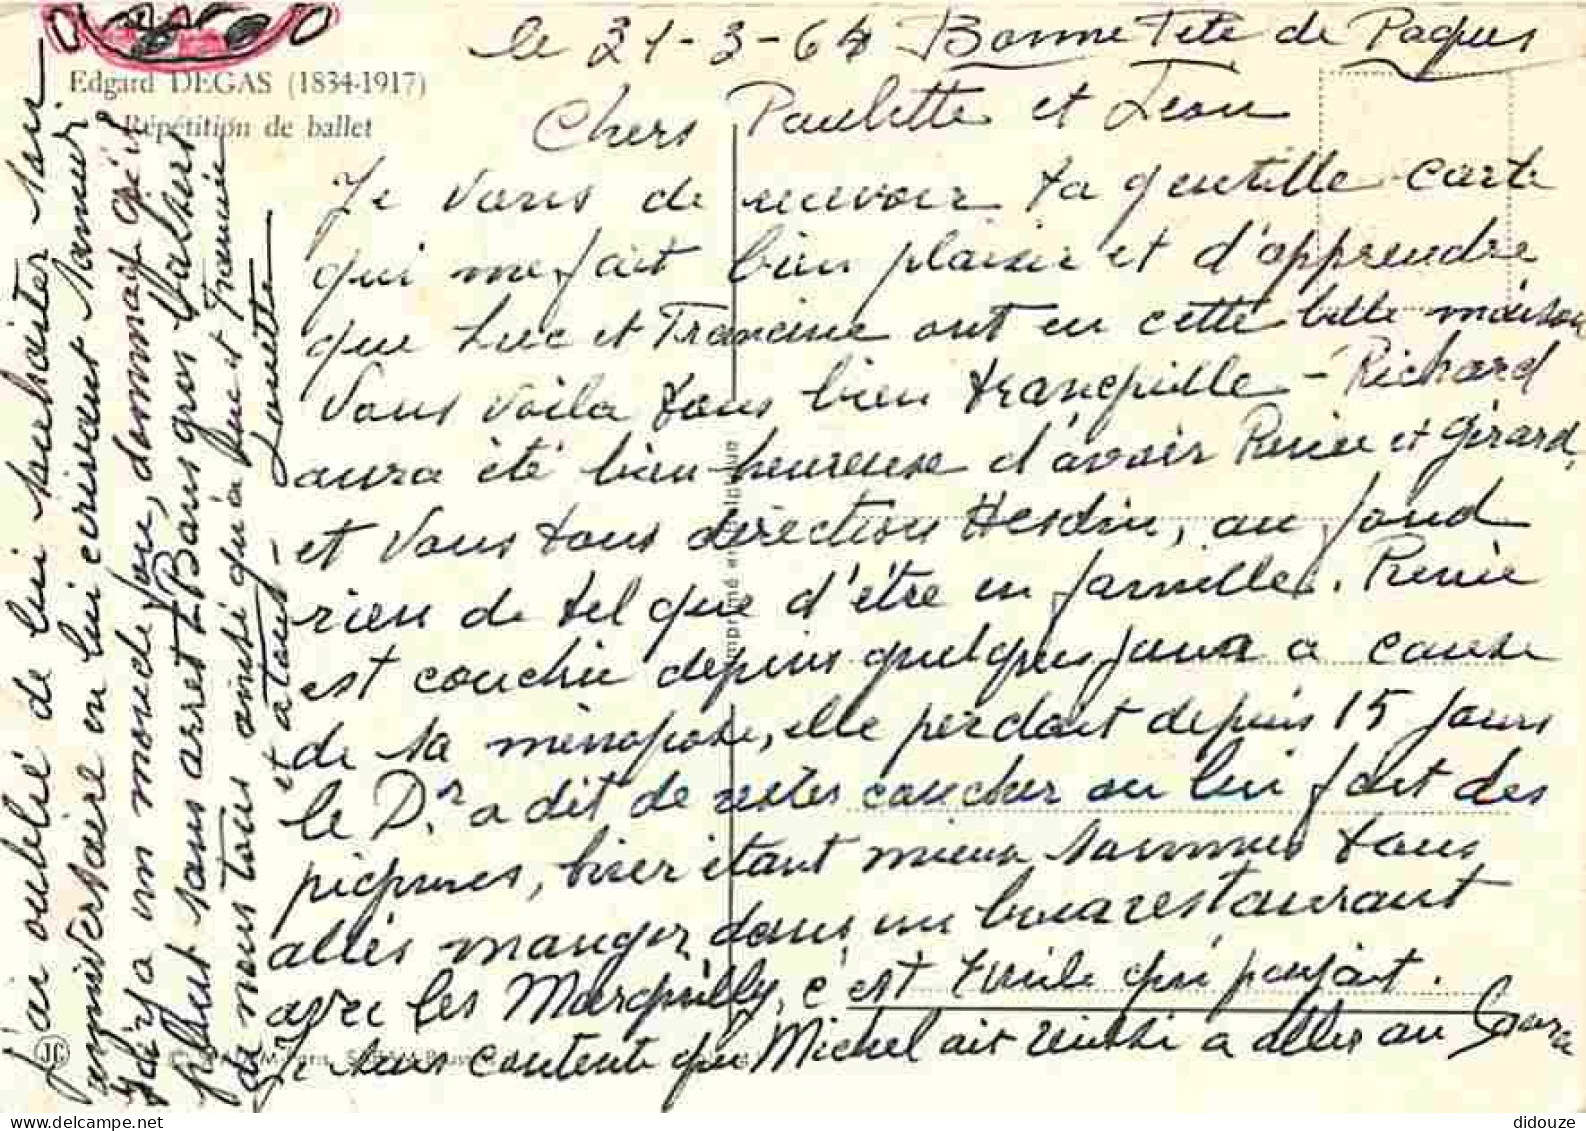 le 21-3-64 Bonne Fete de Paques
Edgard DEGAS (1834-1917)
Répétition de ballet
Chers Paulette et Leon
Je vous de recevoir ta gentille carte
qui me fait bien plaisir et d'apprendre
que Luc et Francine ont eu cette belle maison
Vous voila tous bien tranquille - Richard
aura été bien heureuse d'avoir Renée et Gérard,
et Vous tous direction Hesdin, au fond
rien de tel que d'être en famille. Renée
est couchée depuis quelques jours a cause
de sa ménopose, elle perdait depuis 15 jours
le Dr. a dit de restes coucher on lui fait des
piqures, hier étant mieux sommes tous
allés manger dans un bon restaurant
avec les Marquilly, c'est Emile qui payait.
Je suis contente que Michel ait réussi a aller au
j'ai oublié de lui souhaiter son
anniversaire en lui ecrivant samedi
Il y a un monde fou, dommage qu'il
pleut sans arret Bons gros baisers
de nous tous ainsi qu'a Luc et Francine
et a tous - Louette
Imprimé en
JC
didouze